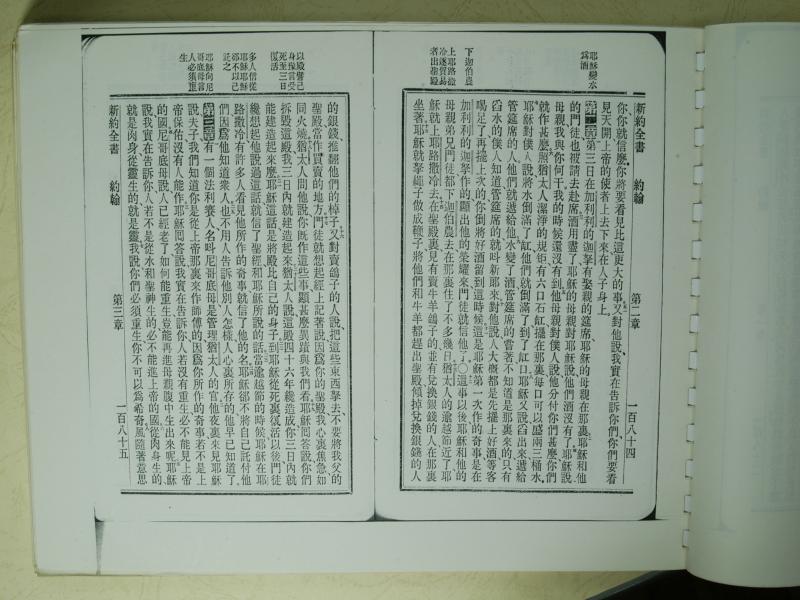 新約全書 約翰 第二章 一百八十四
耶穌變水
爲酒
下迦伯農
上耶路撒
冷逐貿易
者出聖殿
你你就信麽你將要看見比這更大的事又對他說我實在告訴你們你們要看
見天開上帝的使者上去下來在人子身上
第二章第三日在加利利的迦拏有娶親的筵席耶穌的母親在那裏耶穌和他
的門徒也被請去赴席酒用盡了耶穌的母親對耶穌說他們酒沒有了耶穌說
母親我與你何干我的時候還沒有到他母親對僕人說他分付你們甚麽你們
就作甚麽照猶太人潔淨的規矩有六口石缸擺在那裏每口可以盛兩三桶水
耶穌對僕人說將水倒滿了缸他們就倒滿了到了缸口耶穌又說舀出來遞給
管筵席的人他們就遞給他水變了酒管筵席的嘗著不知道是那裏來的只有
舀水的僕人知道管筵席的就呌新郎來對他說人大概都是先擺上好酒等客
喝足了再擺上次的你倒將好酒留到這時候這是耶穌第一次作的奇事是在
加利利的迦拏作的顯出他的榮耀來門徒就信他了〇這事以後耶穌和他的
母親弟兄門徒都下迦伯農去在那裏住了不多幾日猶太人的逾越節近了耶
穌就上耶路撒冷去在聖殿裏見有賣牛羊鴿子的並有兌換銀錢的人在那裏
坐著耶穌就拏繩子做成鞭子將他們和牛羊都趕出聖殿傾掉兌換銀錢的人
新約全書 約翰 第三章 一百八十五
以殿譬己
身豫言受
死至三日
復活
多人信從
耶穌耶穌
却不以己
託之
耶穌向尼
哥底母言
人必須重
生
的銀錢推翻他們的棹子又對賣鴿子的人說把這些東西拏去不要將我父的
聖殿當作買賣的地方門徒就想起經上記著說因爲你的聖殿我心裏焦急如
同火燒猶太人問他說你旣作這些事顯甚麽異蹟與我們看耶穌囘答說你們
拆毀這殿我三日內就建造起來猶太人說這殿四十六年纔造成你三日內就
能建造起來麽耶穌這話是將殿比自己的身子到耶穌從死裏復活以後門徒
纔想起他說過這話就信了聖經和耶穌所說的話當逾越節的時候耶穌在耶
路撒冷有許多人看見他所作的奇事就信了他的名耶穌卻不將自己託付他
們因爲他知道衆人也不用人告訴他別人怎樣人心裏所存的他早已知道了
第三章有一個法利賽人名呌尼哥底母是管理猶太人的官他夜裏來見耶穌
說夫子我們知道你是從上帝那裏來作師傅的因爲你所作的奇事若不是上
帝保佑沒有人能作耶穌囘答說我實在告訴你人若沒有重生必不能見上帝
的國尼哥底母說人已經老了如何能重生豈能再進母親腹中生出來呢耶穌
說我實在告訴你人若不是從水和聖神生的必不能進上帝的國從肉身生的
就是肉身從靈生的就是靈我說你們必須重生你不可以爲希奇風隨著意思